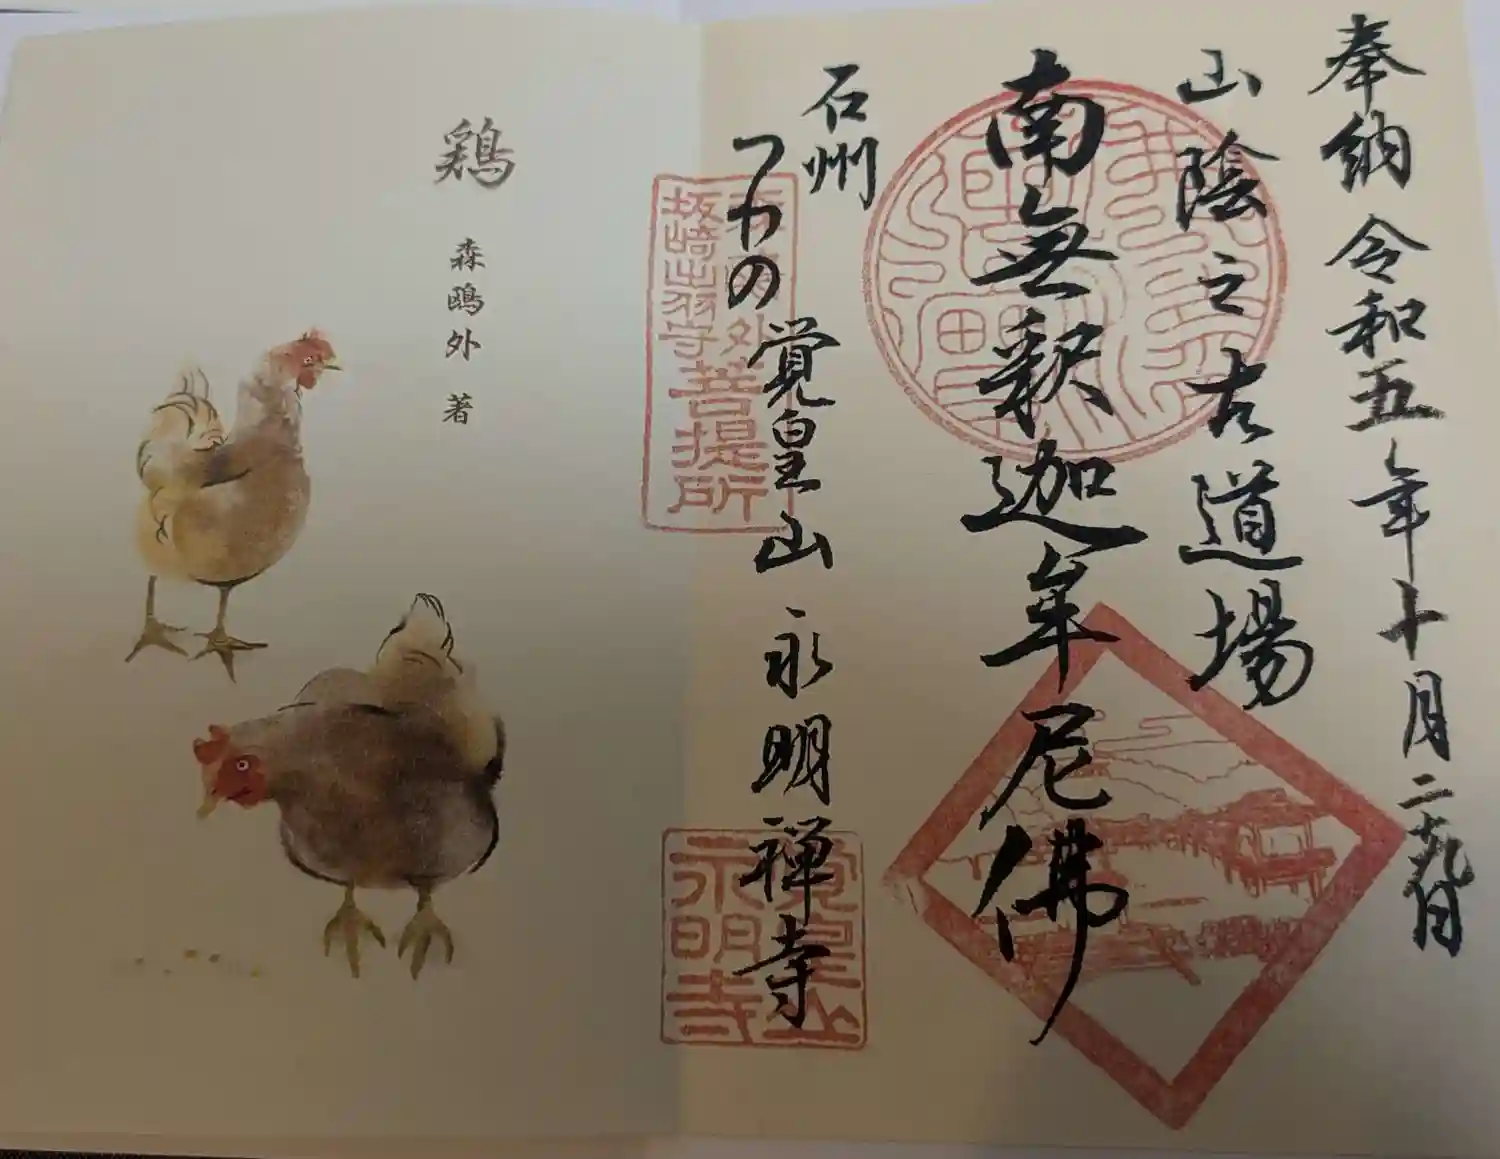 奉納 令和五年十月二十九日
山陰之古道場
南無釈迦牟尼佛
石州
つわの 覚皇山 永明禅寺
森鷗外
坂崎出羽守
菩提所
覚皇山
永明寺
鶏
森鷗外 著